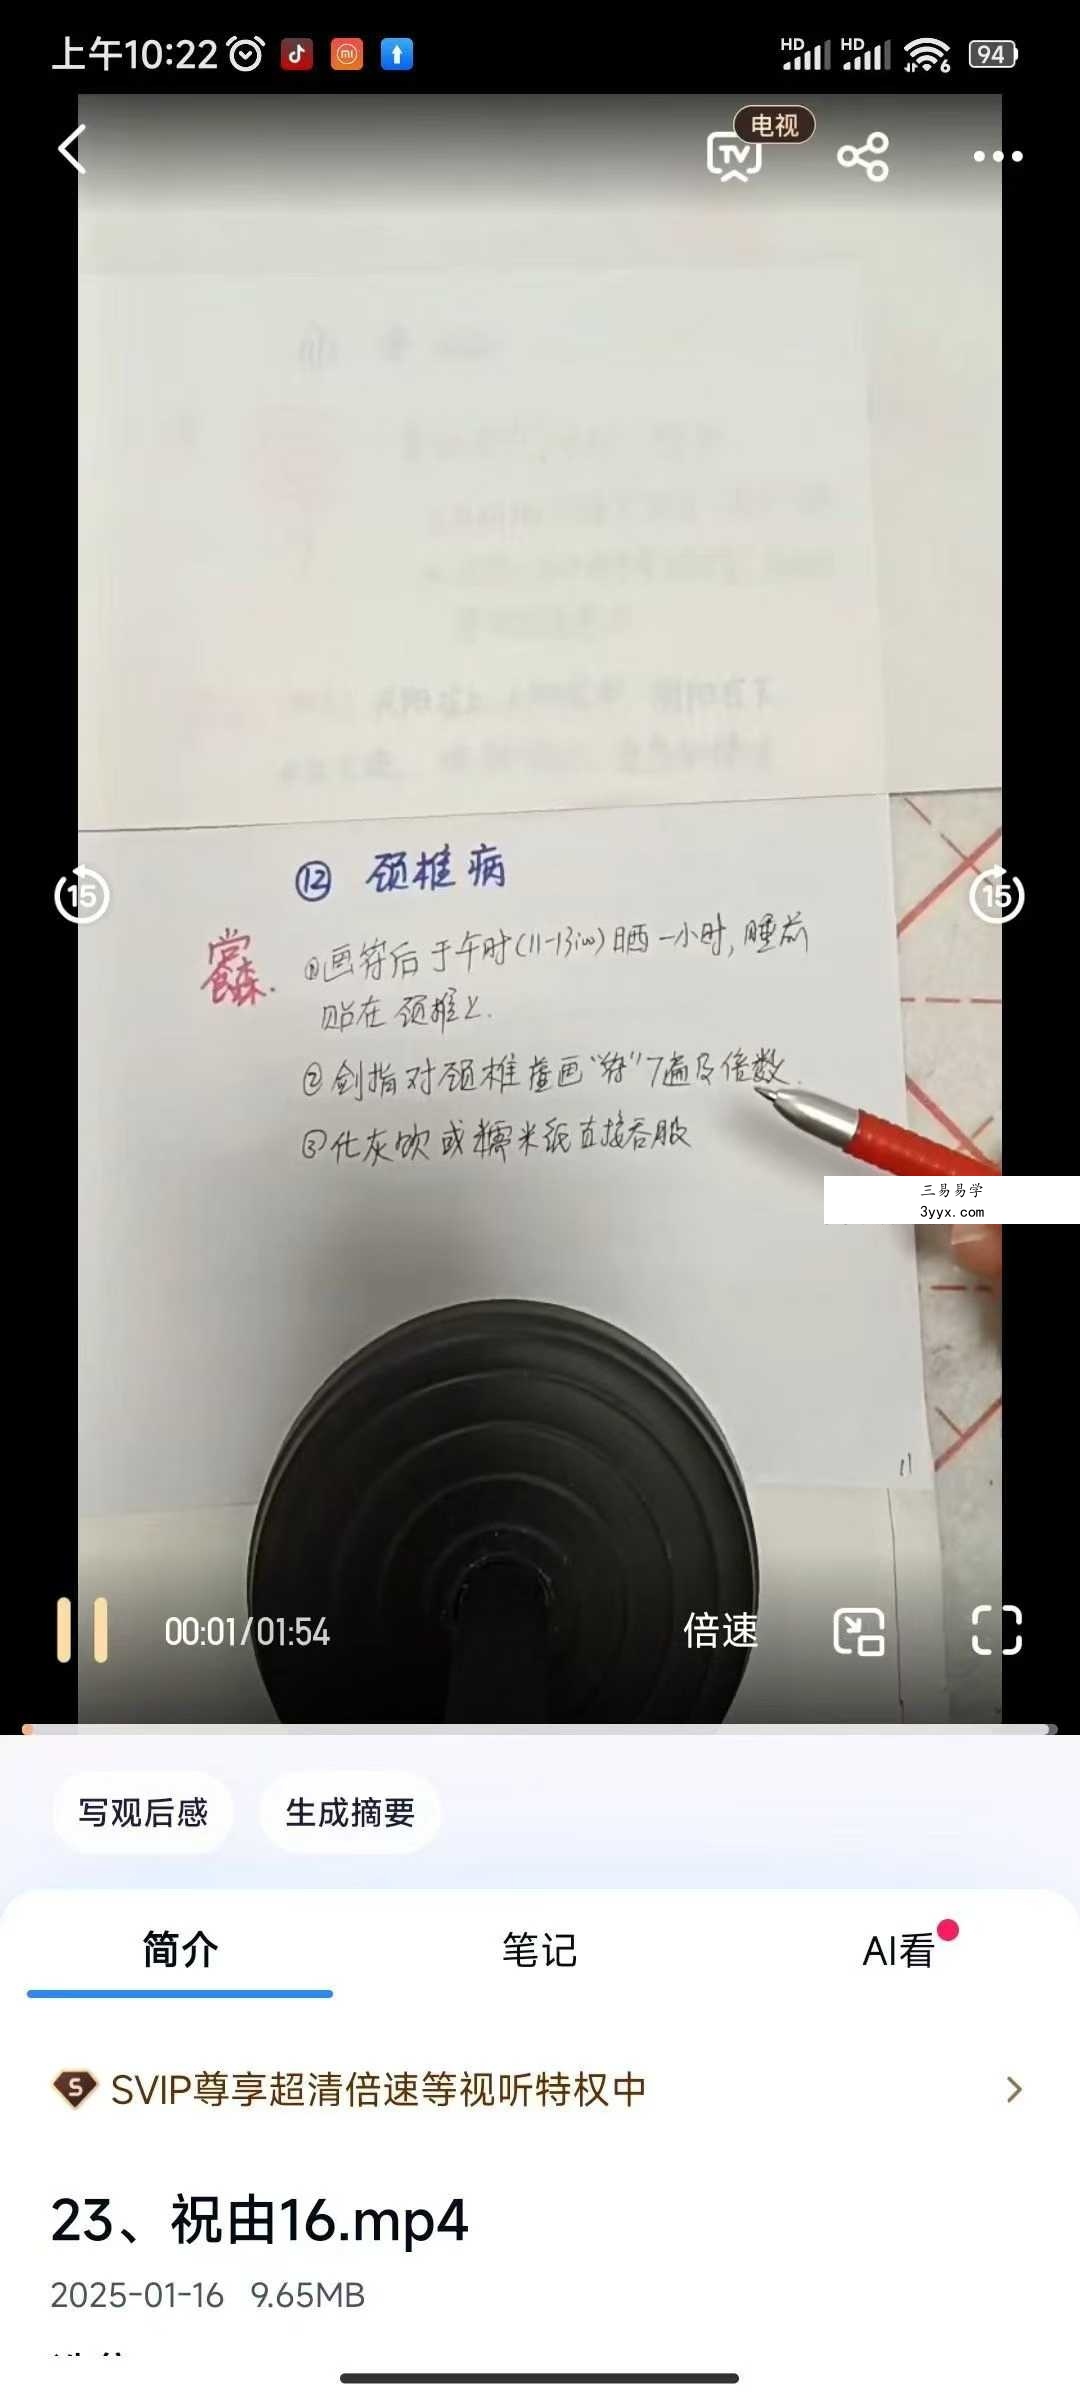 上午10:22
HD
HD
6
94
电视
TV
15
15
⑫ 颈椎病
①画符后于午时(11-13:00)晒一小时,睡前
贴在颈椎上.
②剑指对颈椎虚画“符”7遍及倍数.
③化灰饮或糯米纸直接吞服
三易易学
3yyx.com
11
00:01/01:54
倍速
写观后感
生成摘要
简介
笔记
AI看
SVIP尊享超清倍速等视听特权中
23、祝由16.mp4
2025-01-16 9.65MB